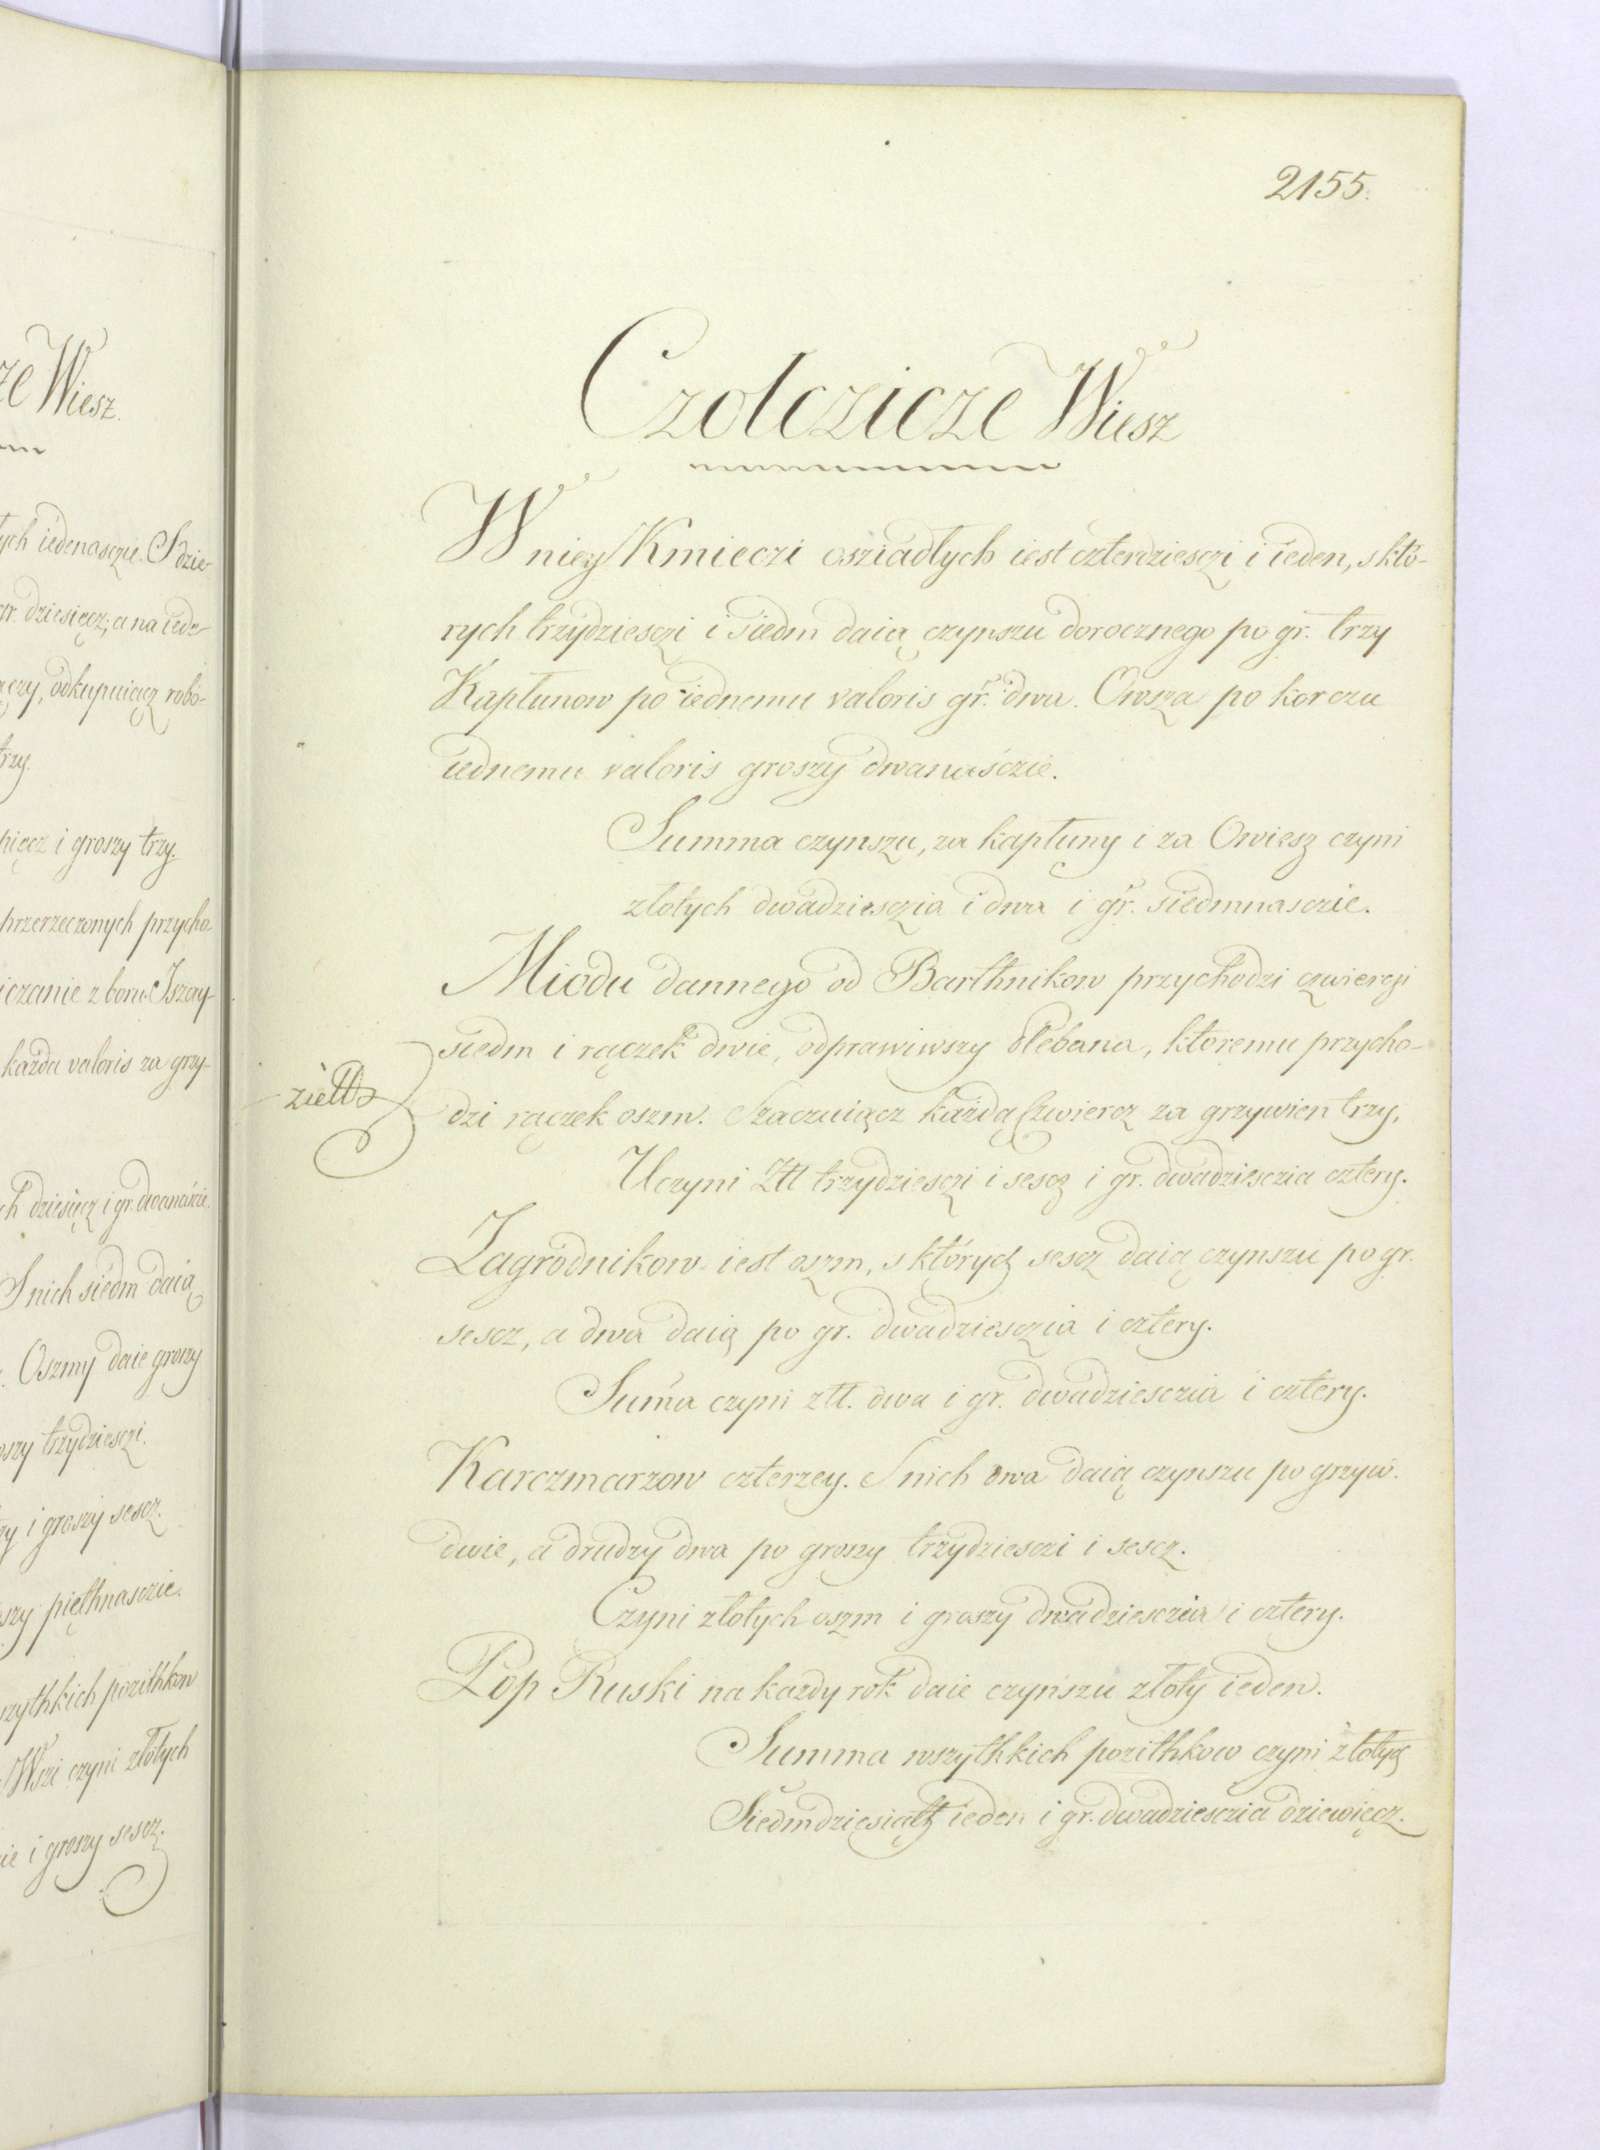 ze Wiesz.
ych iedenasczie. S dzie-
gr. dziesięcz; a na iede-
odkupuiącz robó-
trzy.
pięcz i groszy trzy.
przerzeczonych przycho
iczanie z boru Iszay-
każda valoris za grzy-
ch dziesięcz i gr. dwanaście.
S nich siedm daią
Oszmy daie groszy
oszy trzydziesczi.
i groszy sescz.
szy pięthnasczie.
szythkich pozithkow
Wszi czyni złotych
ie i groszy sescz.
2155.
Czolczicze Wiesz
W niey Kmieczi osziadłych iest czterdziesczi i ieden, s któ-
rych trzydziesczi i siedm daią czynszu dorocznego po gr. trzy
Kapłunow po iednemu valoris gr. dwa. Owsza po korczu
iednemu valoris groszy dwanaśczie.
Summa czynszu, za kapłuny i za Owiesz czyni
złotych dwadziesczia i dwa i gr. siedmnasczie.
Miodu dannego od Barthnikow przychodzi czwierczi
siedm i rączek dwie, odprawiwszy Plebana, ktoremu przycho-
dzi rączek oszm. Szaczuiącz każdą Czwiercz za grzywien trzy,
Uczyni Ztł trzydziesczi i sescz i gr. dwadziesczia cztery.
Zagrodnikow iest oszm, s których sescz daią czynszu po gr.
sescz, a dwa daią po gr. dwadziesczia i cztery.
Suma czyni ztł. dwa i gr. dwadziesczia i cztery.
Karczmarzow czterzey. S nich dwa daią czynszu po grzyw.
dwie, a drudzy dwa po groszy trzydziesczi i sescz.
Czyni złotych oszm i groszy dwadziesczia i cztery.
Pop Ruski na kazdy rok daie czynszu złoty ieden.
Summa wszythkich pozithkow czyni złotych
Siedmdziesiąth ieden i gr. dwadziesczia dziewięcz.